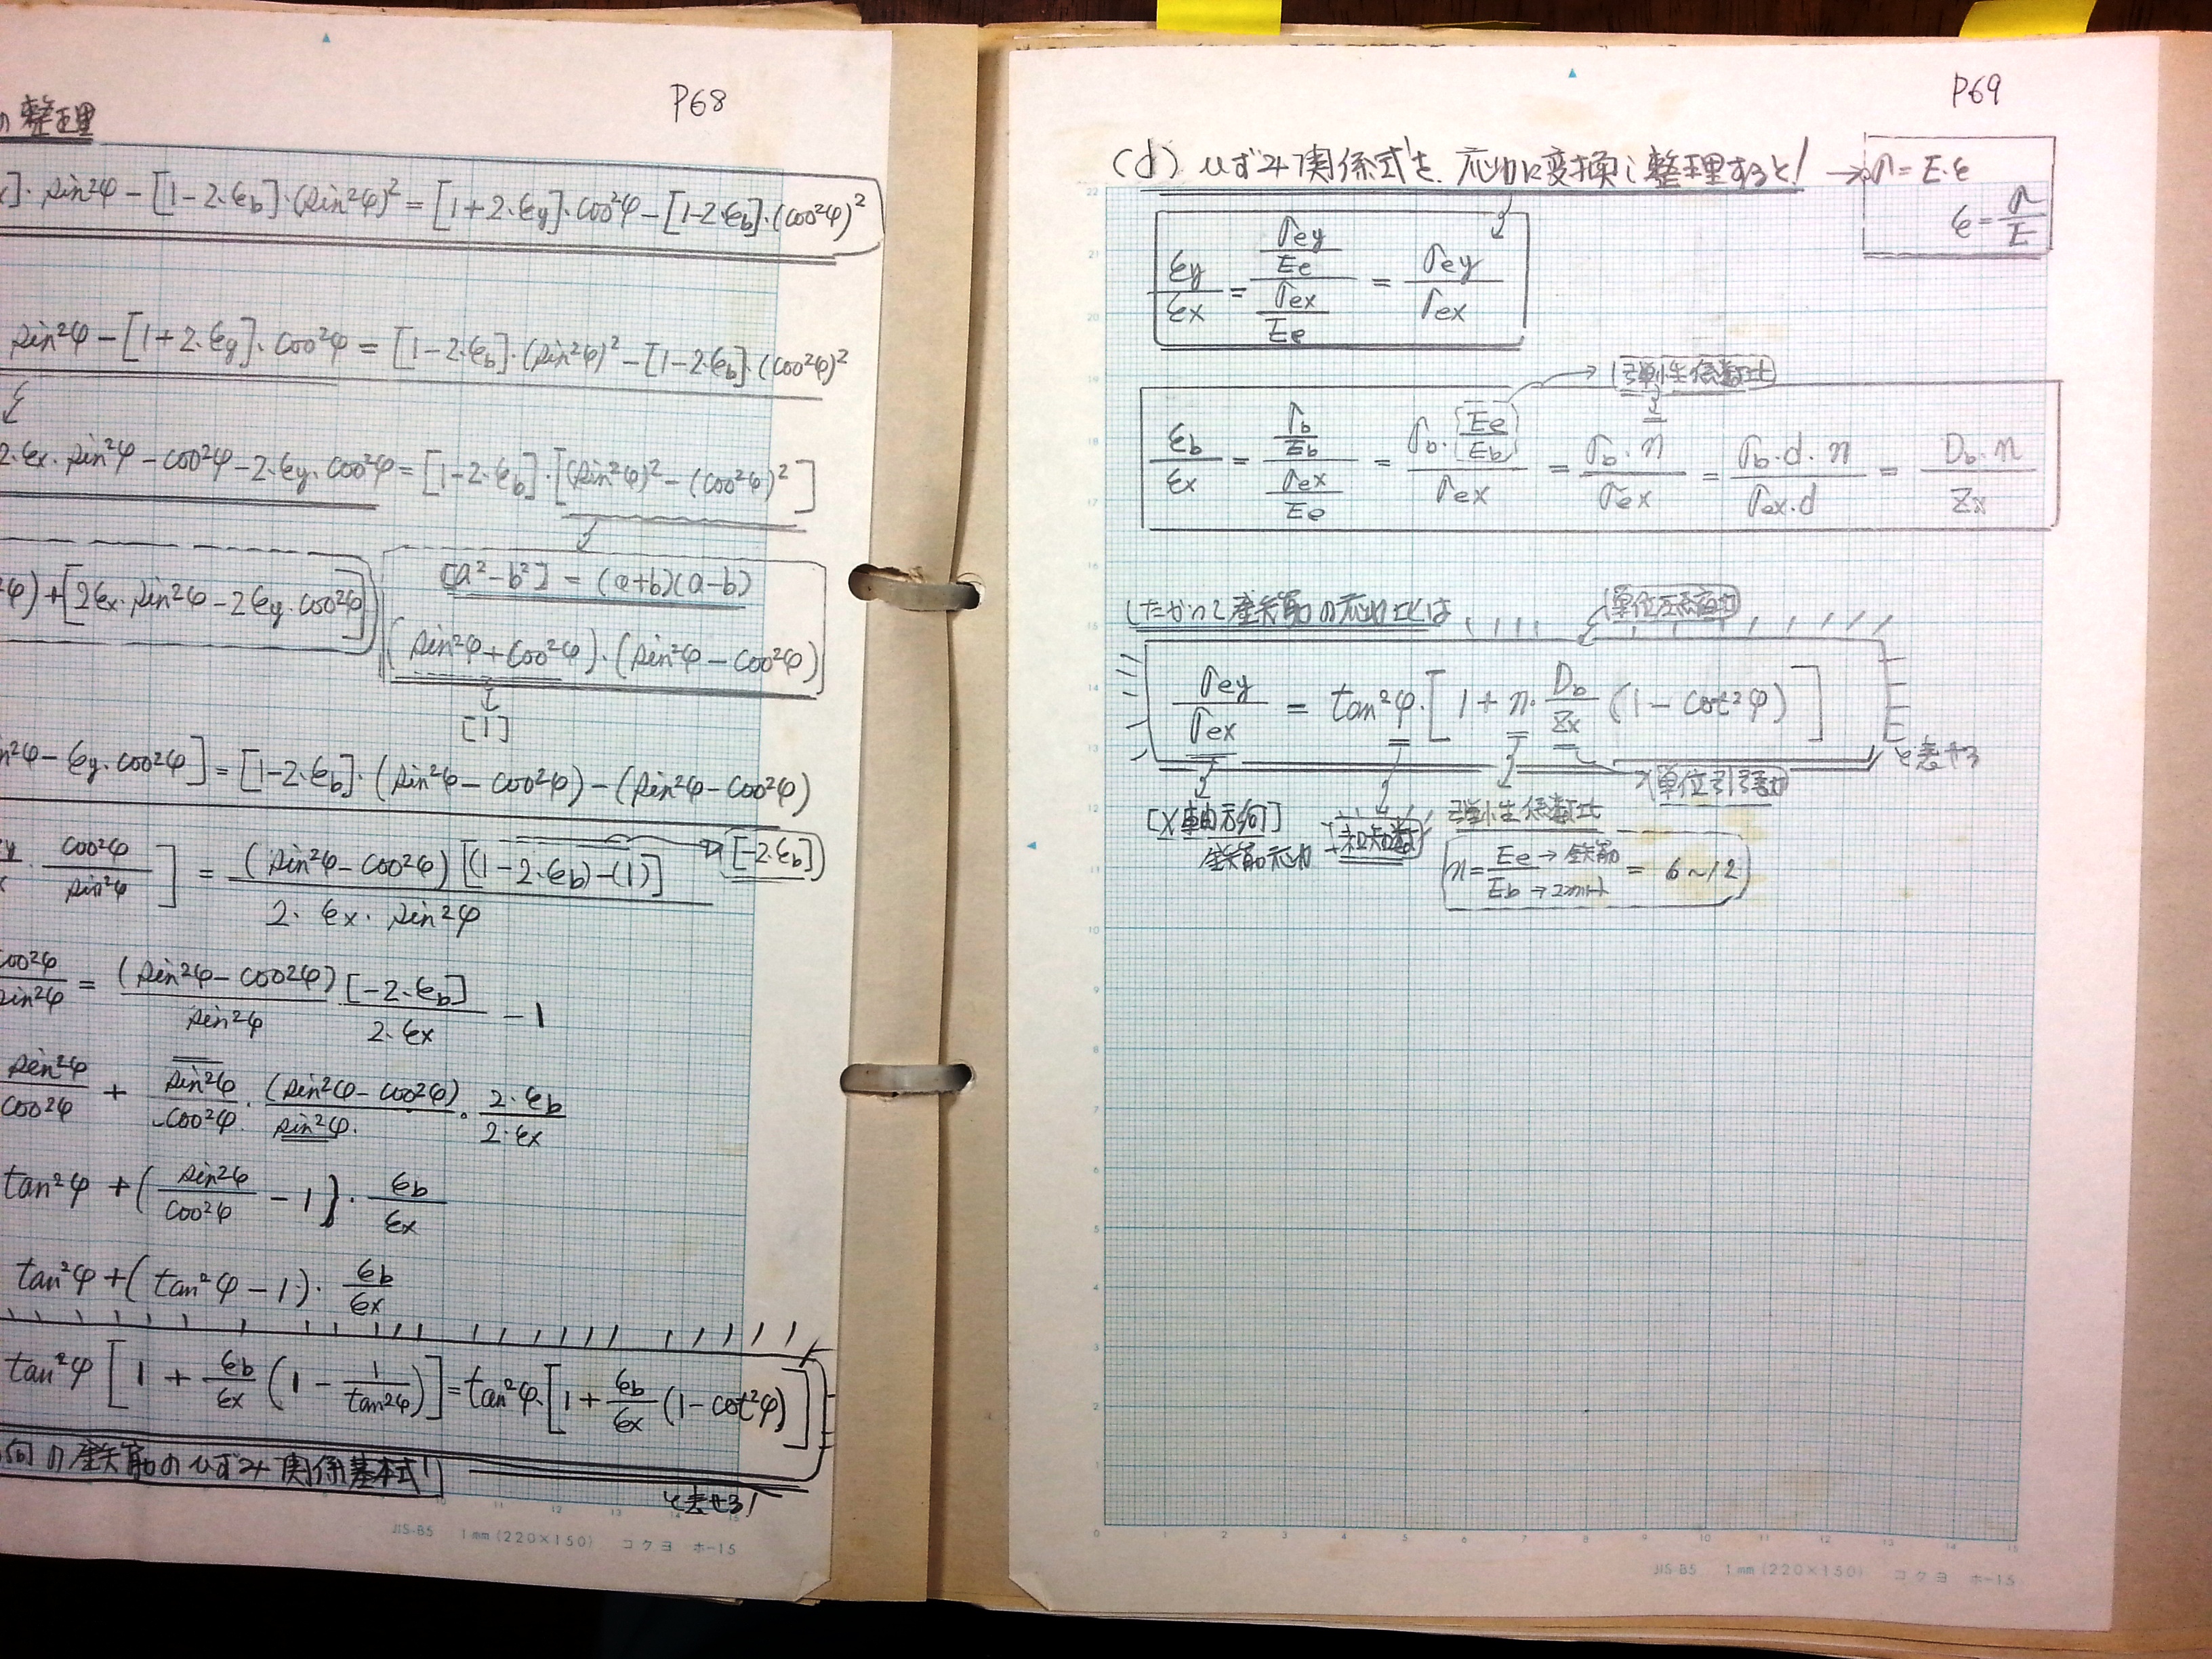 P68
の整理
]・sin²φ－[1－2・εb]・(sin²φ)²＝[1+2・εy]・cos²φ－[1-2・εb]・(cos²φ)²
sin²φ－[1+2・εy]・cos²φ＝[1－2・εb]・(sin²φ)²－[1－2・εb]・(cos²φ)²
2・εx・sin²φ－cos²φ－2・εy・cos²φ＝[1－2・εb]・[(sin²φ)²－(cos²φ)²]
φ)+[2εx・sin²φ－2εy・cos²φ]
[a²－b²]＝(a+b)(a－b)
(sin²φ+cos²φ)・(sin²φ－cos²φ)
[1]
n²φ－εy・cos²φ]＝[1－2・εb]・(sin²φ－cos²φ)－(sin²φ－cos²φ)
・cos²φ/sin²φ]＝(sin²φ－cos²φ)[(1－2・εb)－(1)]/2・εx・sin²φ → [-2・εb]
cos²φ/sin²φ＝(sin²φ－cos²φ)/sin²φ・[－2・εb]/2・εx－1
sin²φ/cos²φ+sin²φ/cos²φ・(sin²φ－cos²φ)/sin²φ・2・εb/2・εx
tan²φ+(sin²φ/cos²φ－1}・εb/εx
tan²φ+(tan²φ－1)・εb/εx
tan²φ[1+εb/εx(1－1/tan²φ)]＝tan²φ・[1+εb/εx(1－cot²φ)]
向の鉄筋のひずみ関係基本式
と表せる!
JIS-B5 1mm(220×150) コクヨ ホ-15
P69
(d) ひずみ関係式を、応力に変換し整理すると! → σ＝E・ε
ε＝σ/E
εy/εx＝(σey/Ee)/(σex/Ee)＝σey/σex
弾性係数比
εb/εx＝(σb/Eb)/(σex/Ee)＝σb・(Ee/Eb)/σex＝σb・n/σex＝σb・d・n/σex・d＝Db・n/Zx
したがって鉄筋の応力比は
単位圧縮力
σey/σex＝tan²φ・[1+n・Db/Zx(1－cot²φ)]
と表せる
単位引張力
[X軸方向]
鉄筋応力
未知数
弾性係数比
n＝Ee→鉄筋/Eb→コンクリート＝6～12
JIS-B5 1mm(220×150) コクヨ ホ-15